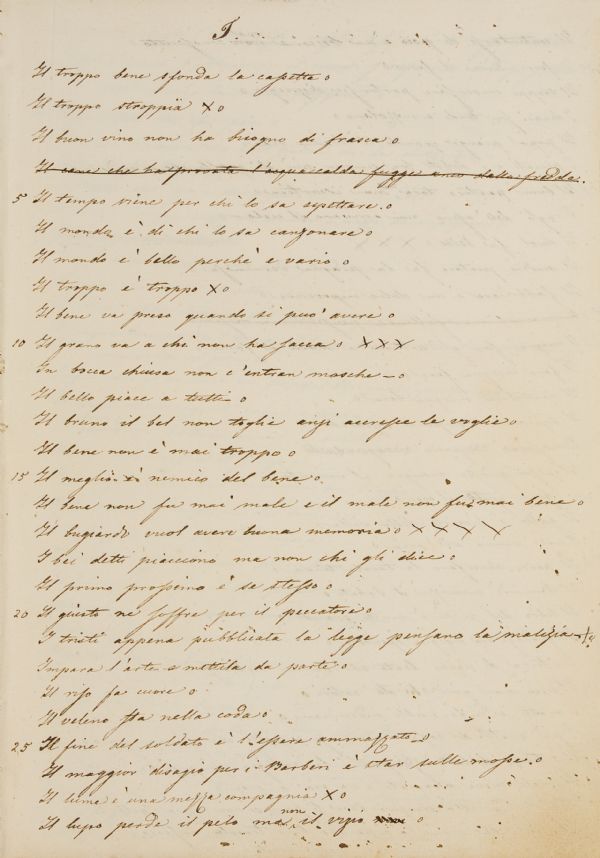 I
Il troppo bene sfonda la cassetta o
Il troppo stroppia x o
Il buon vino non ha bisogno di frasca o
Il cane che ha provata l'acqua calda fugge anco dalla fredda.
5 Il tempo viene per chi lo sa aspettare. o
Il mondo è di chi lo sa canzonare o
Il mondo è bello perchè è vario o
Il troppo è troppo x o
Il bene va preso quando si puo' avere o
10 Il grano va a chi non ha sacca o x x x
In bocca chiusa non c'entran mosche - o
Il bello piace a tutti - o
Il bruno il bel non toglie anzi accresce le voglie o
Il bene non è mai troppo o
15 Il meglio è nemico del bene o
Il bene non fu mai male e il male non fu mai bene o
Il bugiardo vuol avere buona memoria o x x x x
I bei detti piacciono ma non chi gli dice o
Il primo prossimo è se stesso o
20 Il giusto ne soffre per il peccatore o
I tristi appena pubblicata la legge pensano la malizia
Impara l'arte e mettila da parte o
Il riso fa cuore o
Il veleno sta nella coda o
25 Il fine del soldato è l'essere ammazzato o
Il maggior disagio per i Barberi è star sulle mosse. o
Il lume è una mezza compagnia x o
Il lupo perde il pelo ma non il vizio o